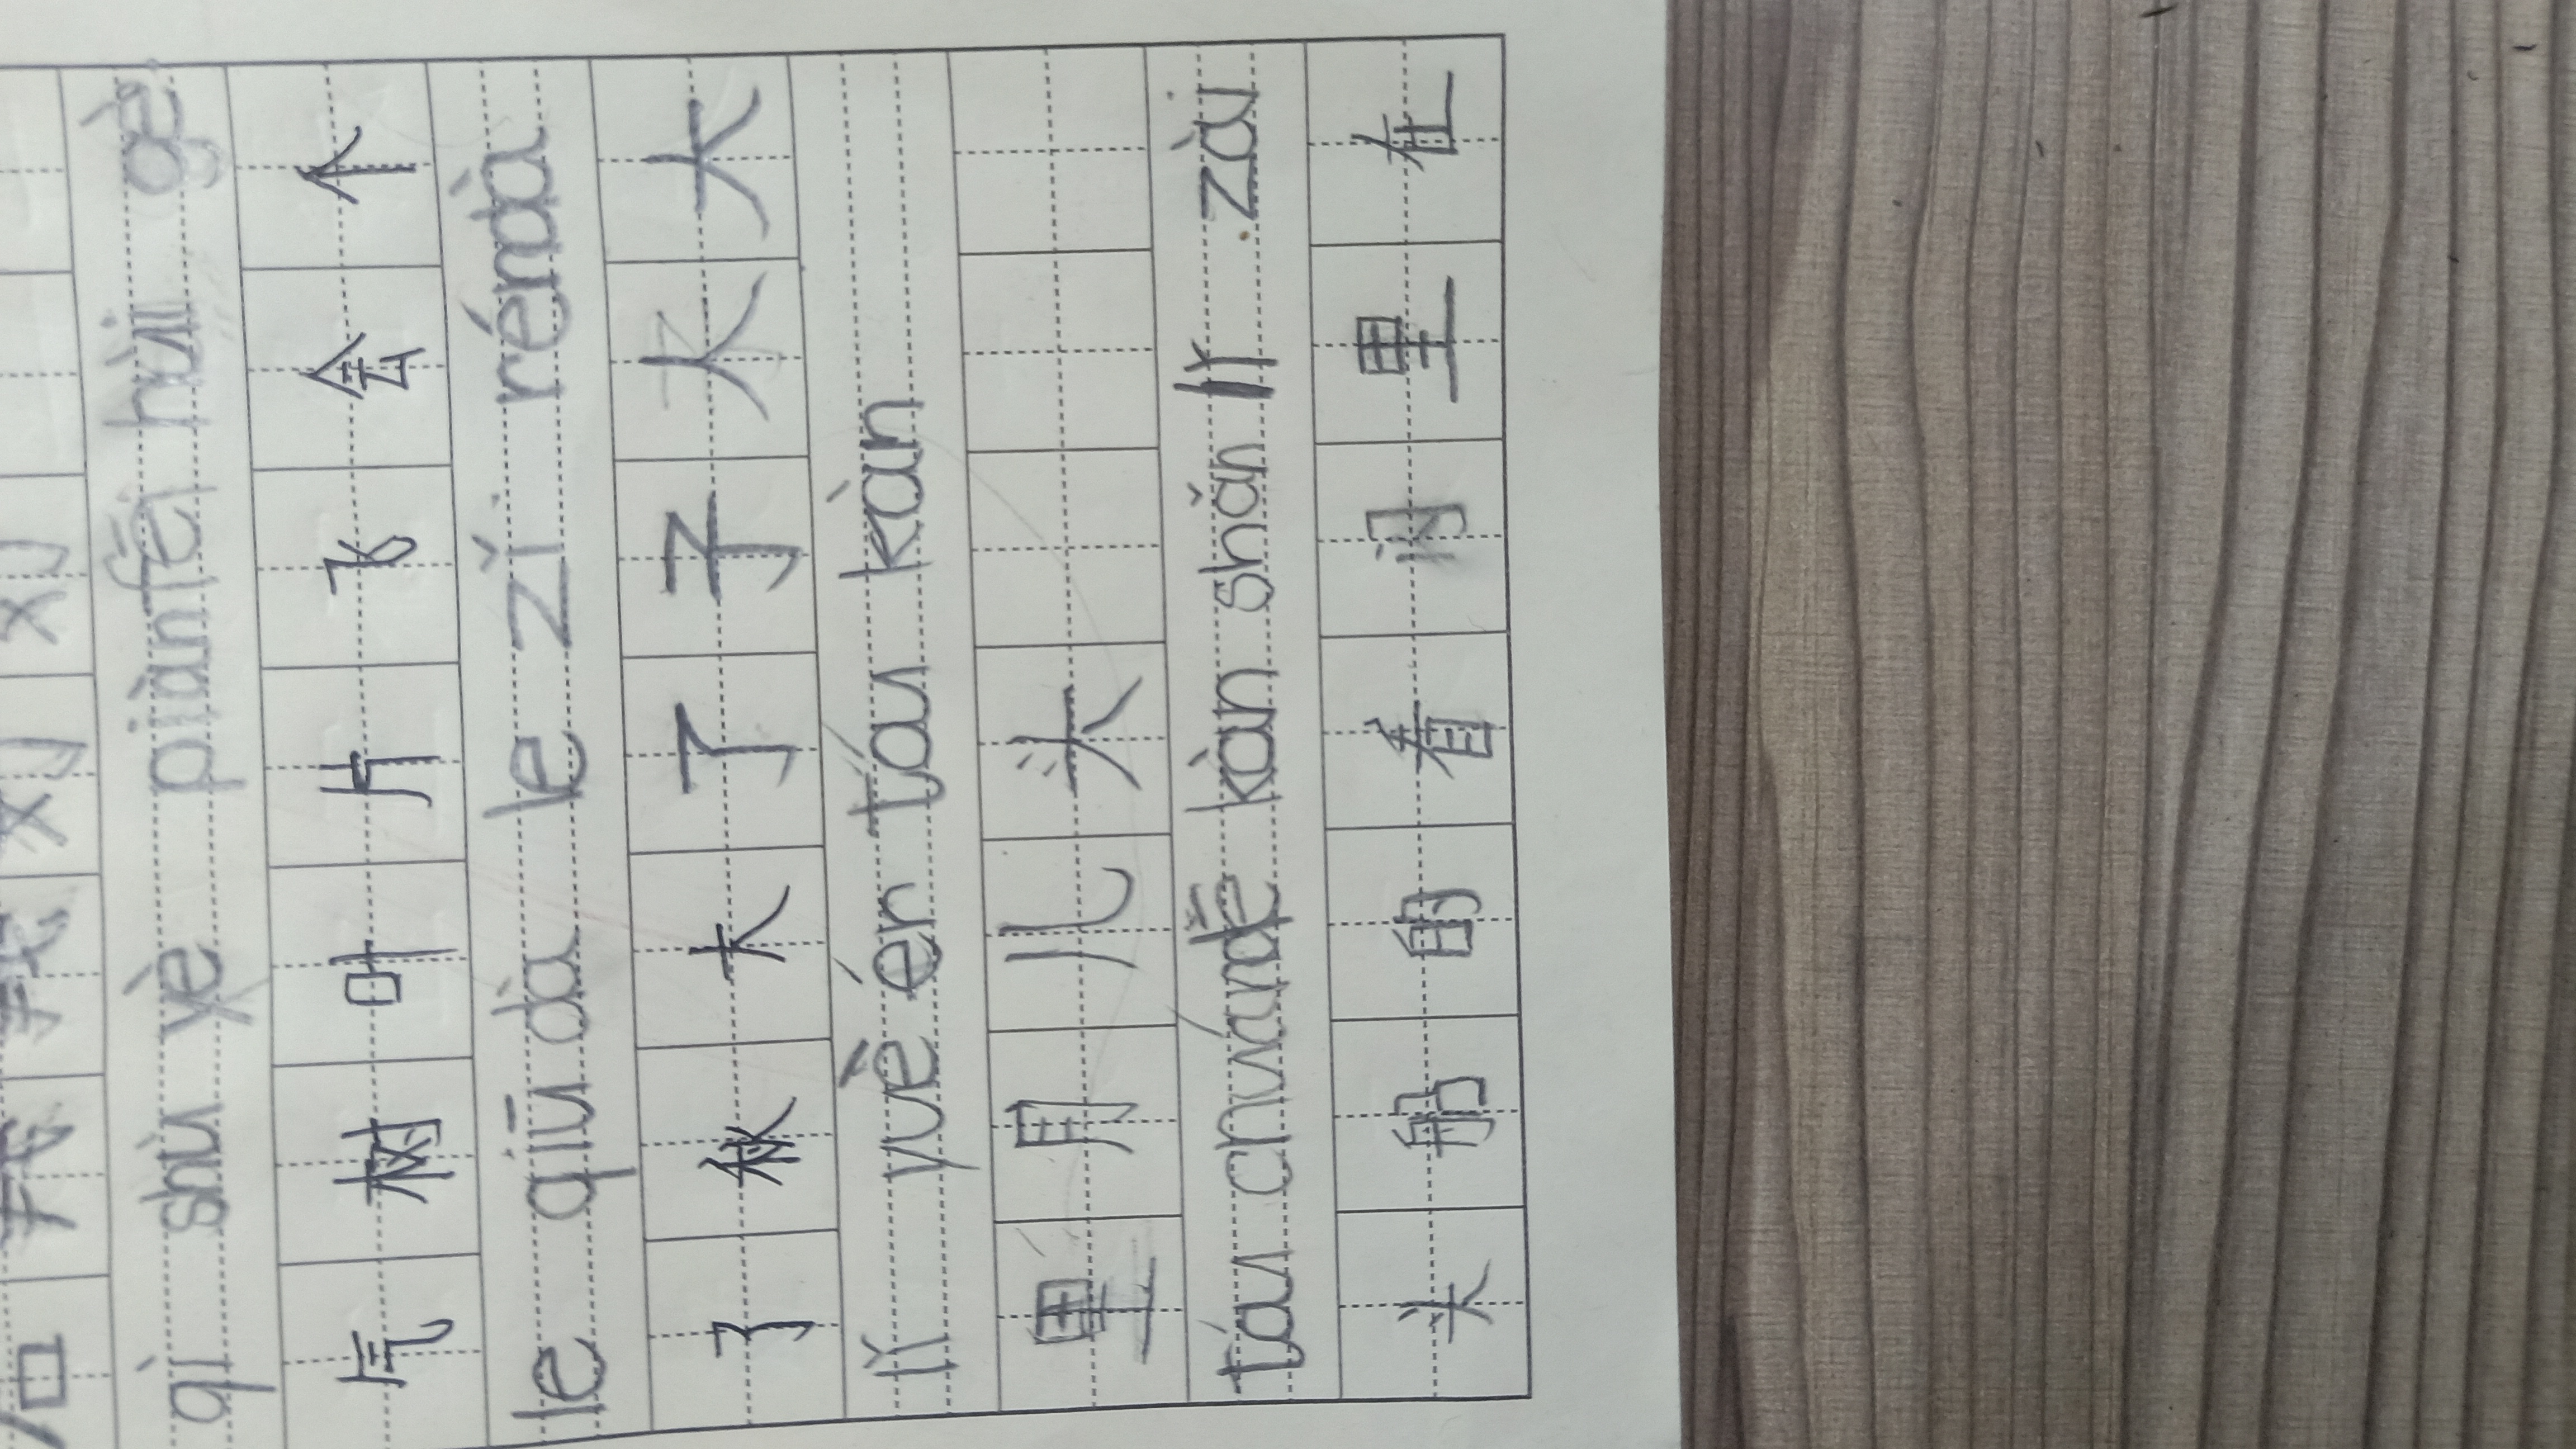 qì shù yè piànfēi huì gè
气树叶片飞会个
le qiū dà le zǐ réndà
了秋大了子人大
lǐ yuè ér táu kàn
里月儿头
táu chuándě kàn shǎn lǐ zài
头船的看里在